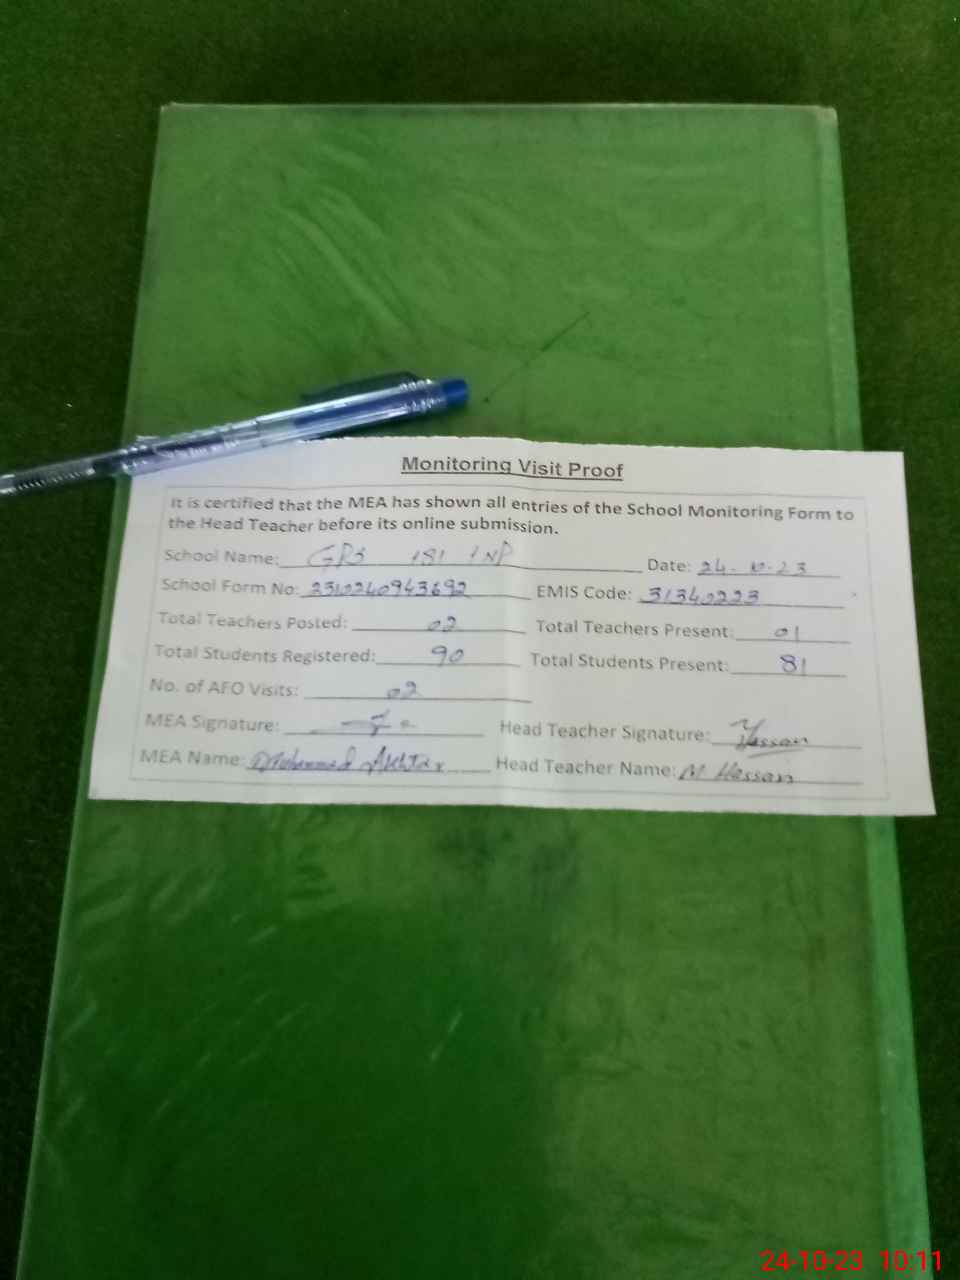 Monitoring Visit Proof
It is certified that the MEA has shown all entries of the School Monitoring Form to
the Head Teacher before its online submission.
School Name: GPS 181 1NP Date: 24-10-23
School Form No: 2310240943692 EMIS Code: 31340223
Total Teachers Posted: 02 Total Teachers Present: 01
Total Students Registered: 90 Total Students Present: 81
No. of AFO Visits: 02
MEA Signature: Head Teacher Signature: Hassan
MEA Name: Muhammad Akhtar Head Teacher Name: M Hassan
24-10-23 10:11